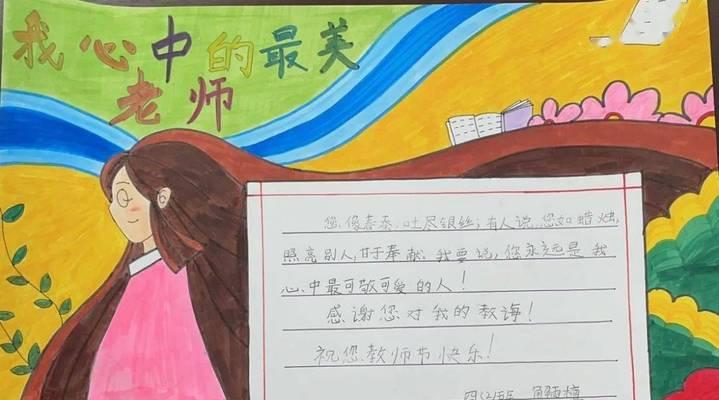 我心中的最美
老师
您像春蚕,吐尽银丝;有人说,您如蜡烛,
照亮别人,甘于奉献。我要说,您永远是我
心中最可敬可爱的人!
感谢您对我的教诲!
祝您教师节快乐!
四(2)班